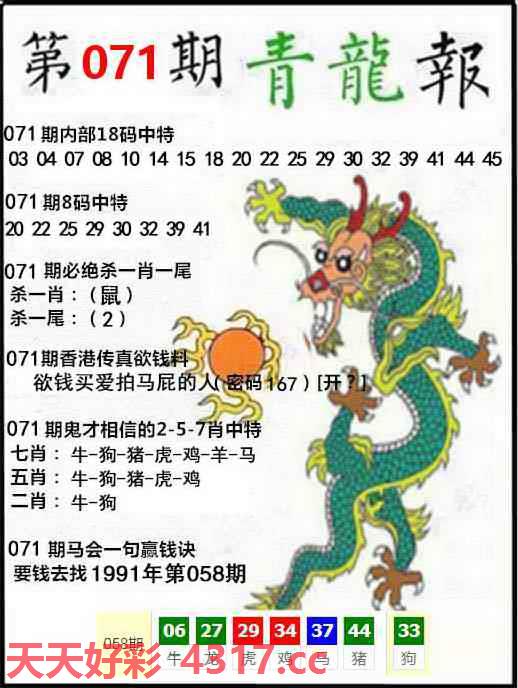 第071期青龍報
071期内部18码中特
03 04 07 08 10 14 15 18 20 22 25 29 30 32 39 41 44 45
071期8码中特
20 22 25 29 30 32 39 41
071 期必绝杀一肖一尾
杀一肖：（鼠）
杀一尾：（2）
071期香港传真欲钱料
欲钱买爱拍马屁的人(密码167)[开？]
071期鬼才相信的2-5-7肖中特
七肖：牛-狗-猪-虎-鸡-羊-马
五肖：牛-狗-猪-虎-鸡
二肖：牛-狗
071 期马会一句赢钱诀
要钱去找1991年第058期
058期 06 27 29 34 37 44 33
牛 龙 虎 鸡 马 猪 狗
天天好彩 4317.cc